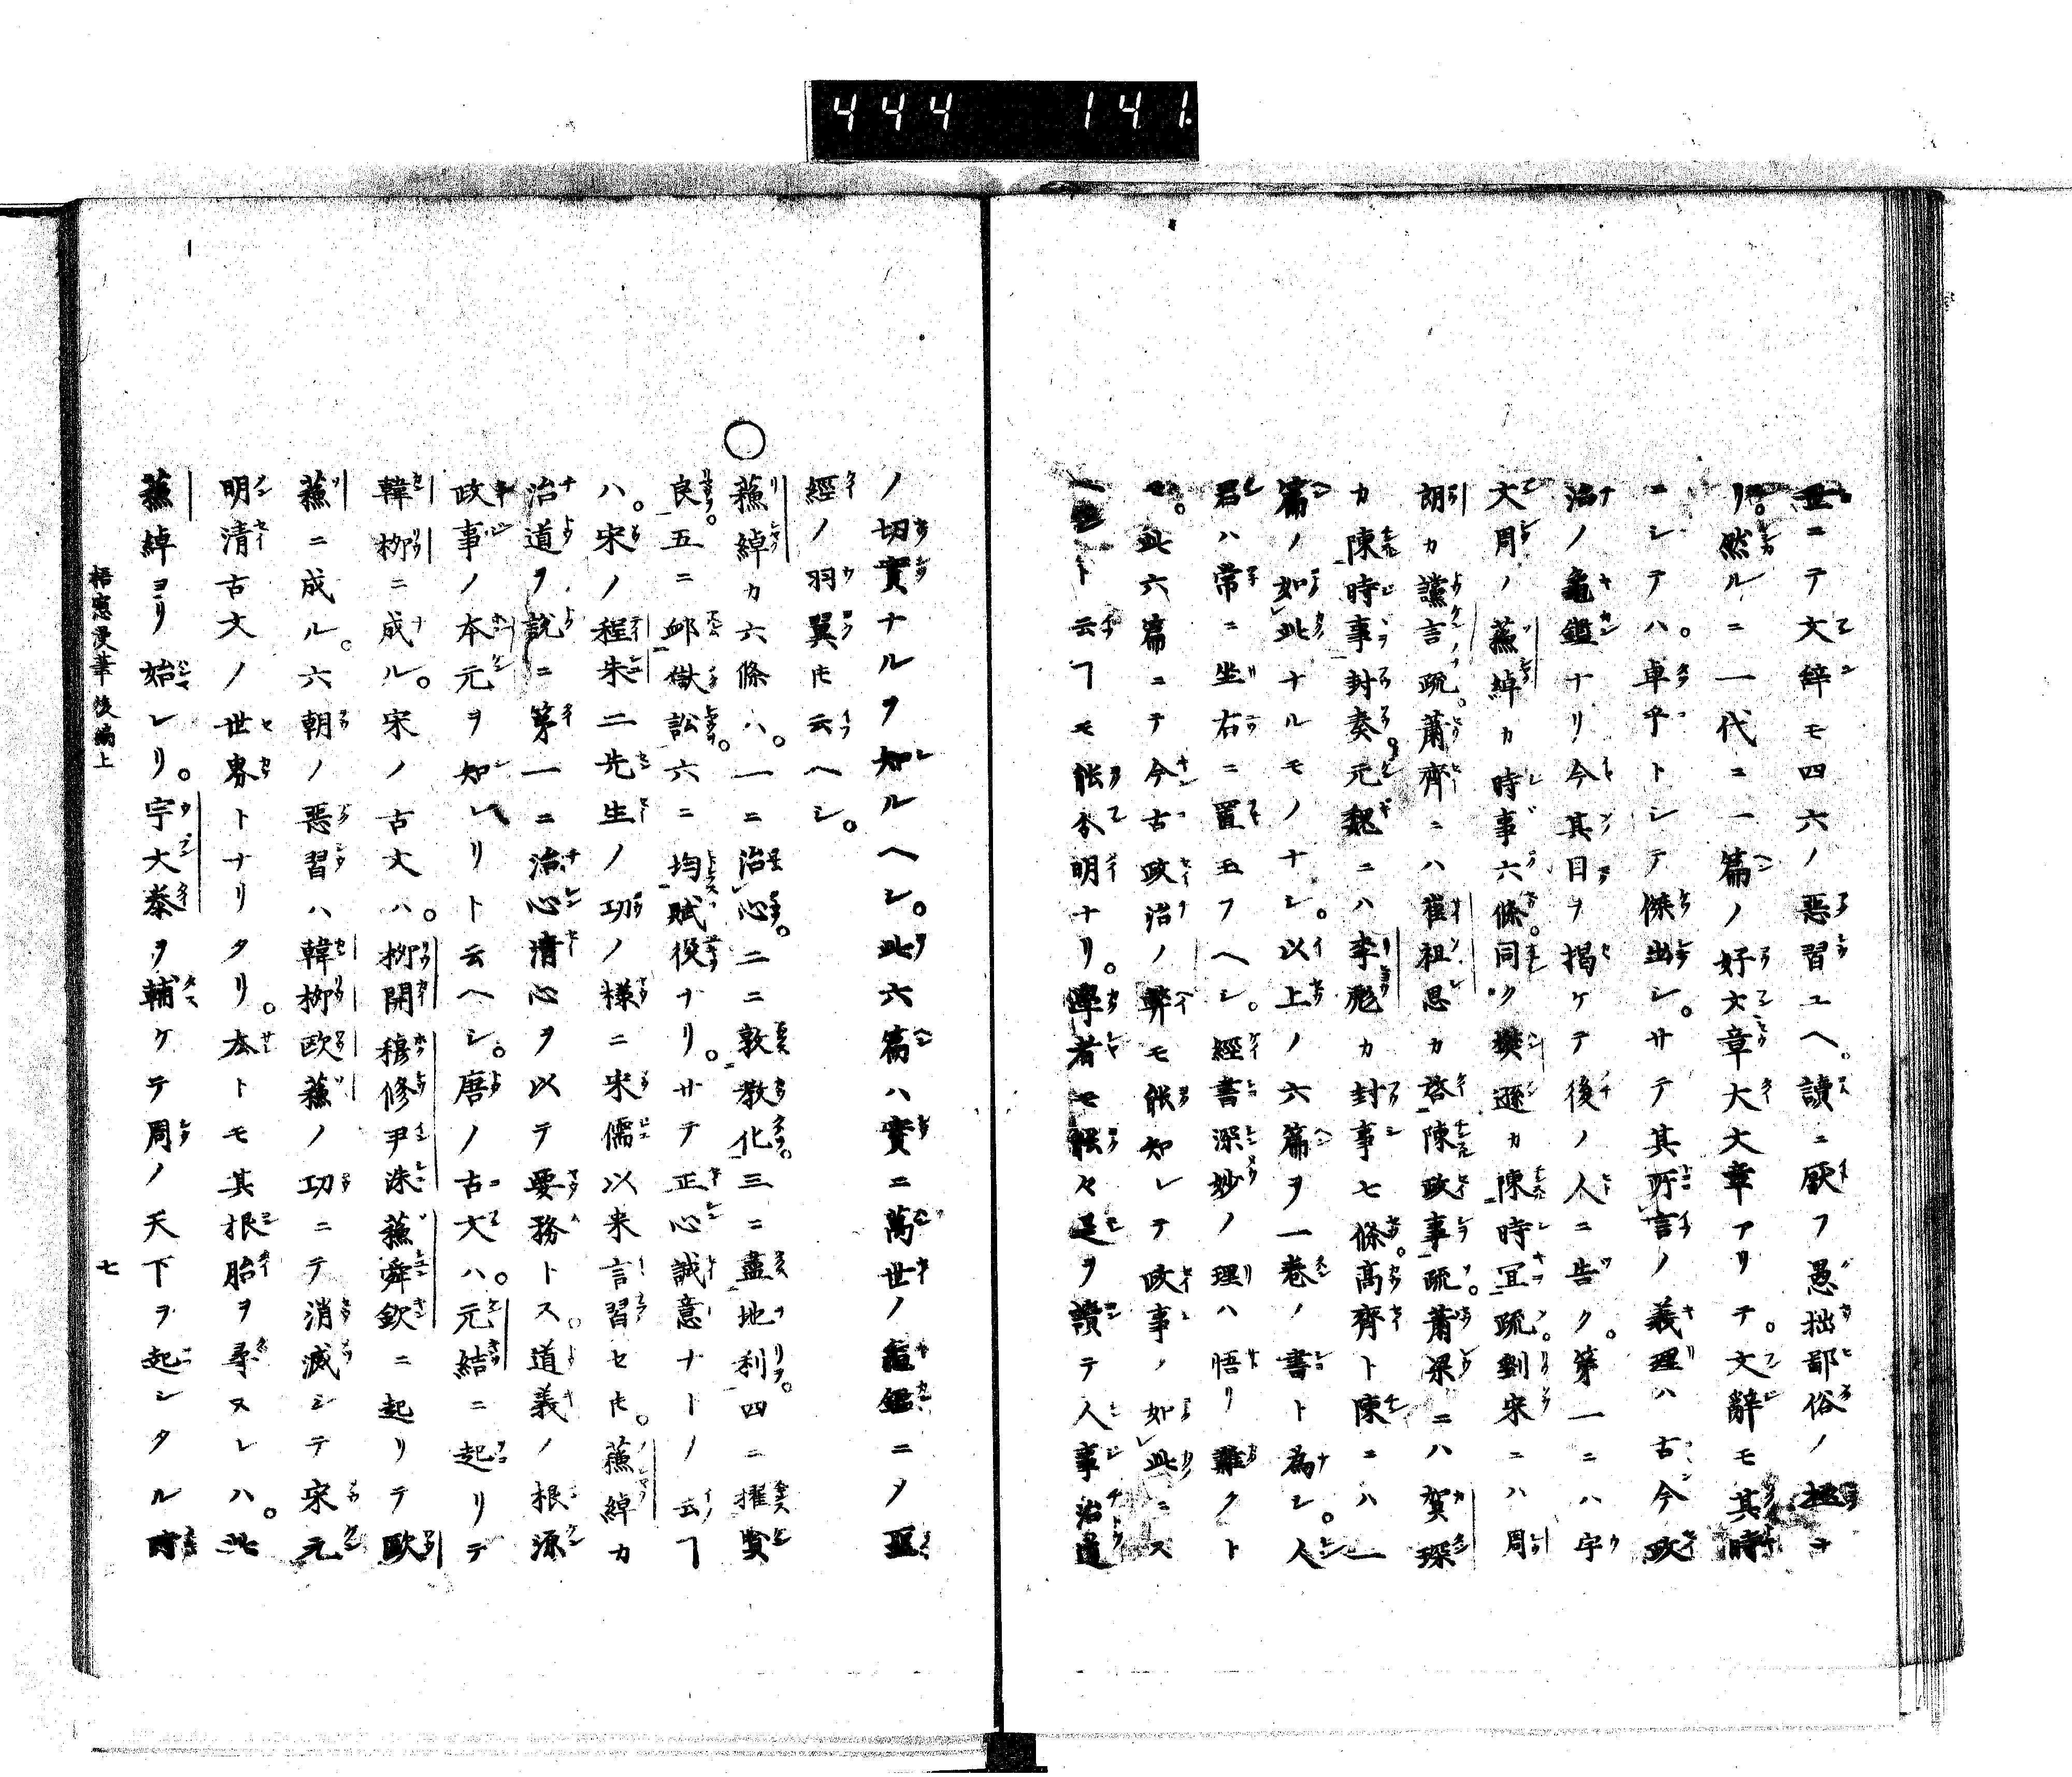 444 141.
世ニテ文辞モ四六ノ惡習ユヘ。讀ニ厭フ愚拙鄙俗ノ極ナ
リ。然ルニ一代ニ一篇ノ好文章大文章アリテ。文辭モ其時
ニシテハ。卓乎トシテ傑出シ。サテ其所言ノ義理ハ古今政
治ノ龜鑑ナリ今其目ヲ揭ケテ後ノ人ニ告ク。第一ニハ宇
文周ノ蘓綽カ時事六條。同ク樊遜カ陳時宜疏。劉宋ニハ周
朗カ讜言疏。蕭齊ニハ崔祖思カ啓陳政事疏。蕭梁ニハ賀琛
カ陳時事封奏。元魏ニハ李彪カ封事七條。髙齊ト陳ニハ一
篇ノ如此ナルモノナシ。以上ノ六篇ヲ一卷ノ書ト為シ。人
君ハ常ニ坐右ニ置玉フヘシ。經書深妙ノ理ハ悟リ難クト
モ。此六篇ニテ今古政治ノ弊モ能知レテ政事ノ如此ニス
ト云ヿモ能分明ナリ。學者モ能々是ヲ讀テ人事治道
ノ切實ナルヲ知ルヘシ。此六篇ハ實ニ萬世ノ龜鑑ニメ亞
經ノ羽翼𪜈云ヘシ。
○蘓綽カ六條ハ。一ニ治心。二ニ敦教化。三ニ盡地利。四ニ擢賢
良。五ニ䘏獄訟。六ニ均賦役ナリ。サテ正心誠意ナトノ云ヿ
ハ。宋ノ程朱二先生ノ功ノ様ニ宋儒以来言習セ𪜈。蘓綽カ
治道ヲ説ニ第一ニ治心清心ヲ以テ要務トス。道義ノ根源
政事ノ本元ヲ知レリト云ヘシ。唐ノ古文ハ。元結ニ起リテ
韓栁ニ成ル。宋ノ古文ハ。栁開穆修尹洙蘓舜欽ニ起リテ歐
蘓ニ成ル。六朝ノ惡習ハ韓栁欧蘓ノ功ニテ消滅シテ宋元
明清古文ノ世界トナリタリ。去トモ其根胎ヲ尋ヌレハ。此
蘓綽ヨリ始レリ。宇文泰ヲ輔ケテ周ノ天下ヲ起シタル時
梧窻漫筆後編上 七